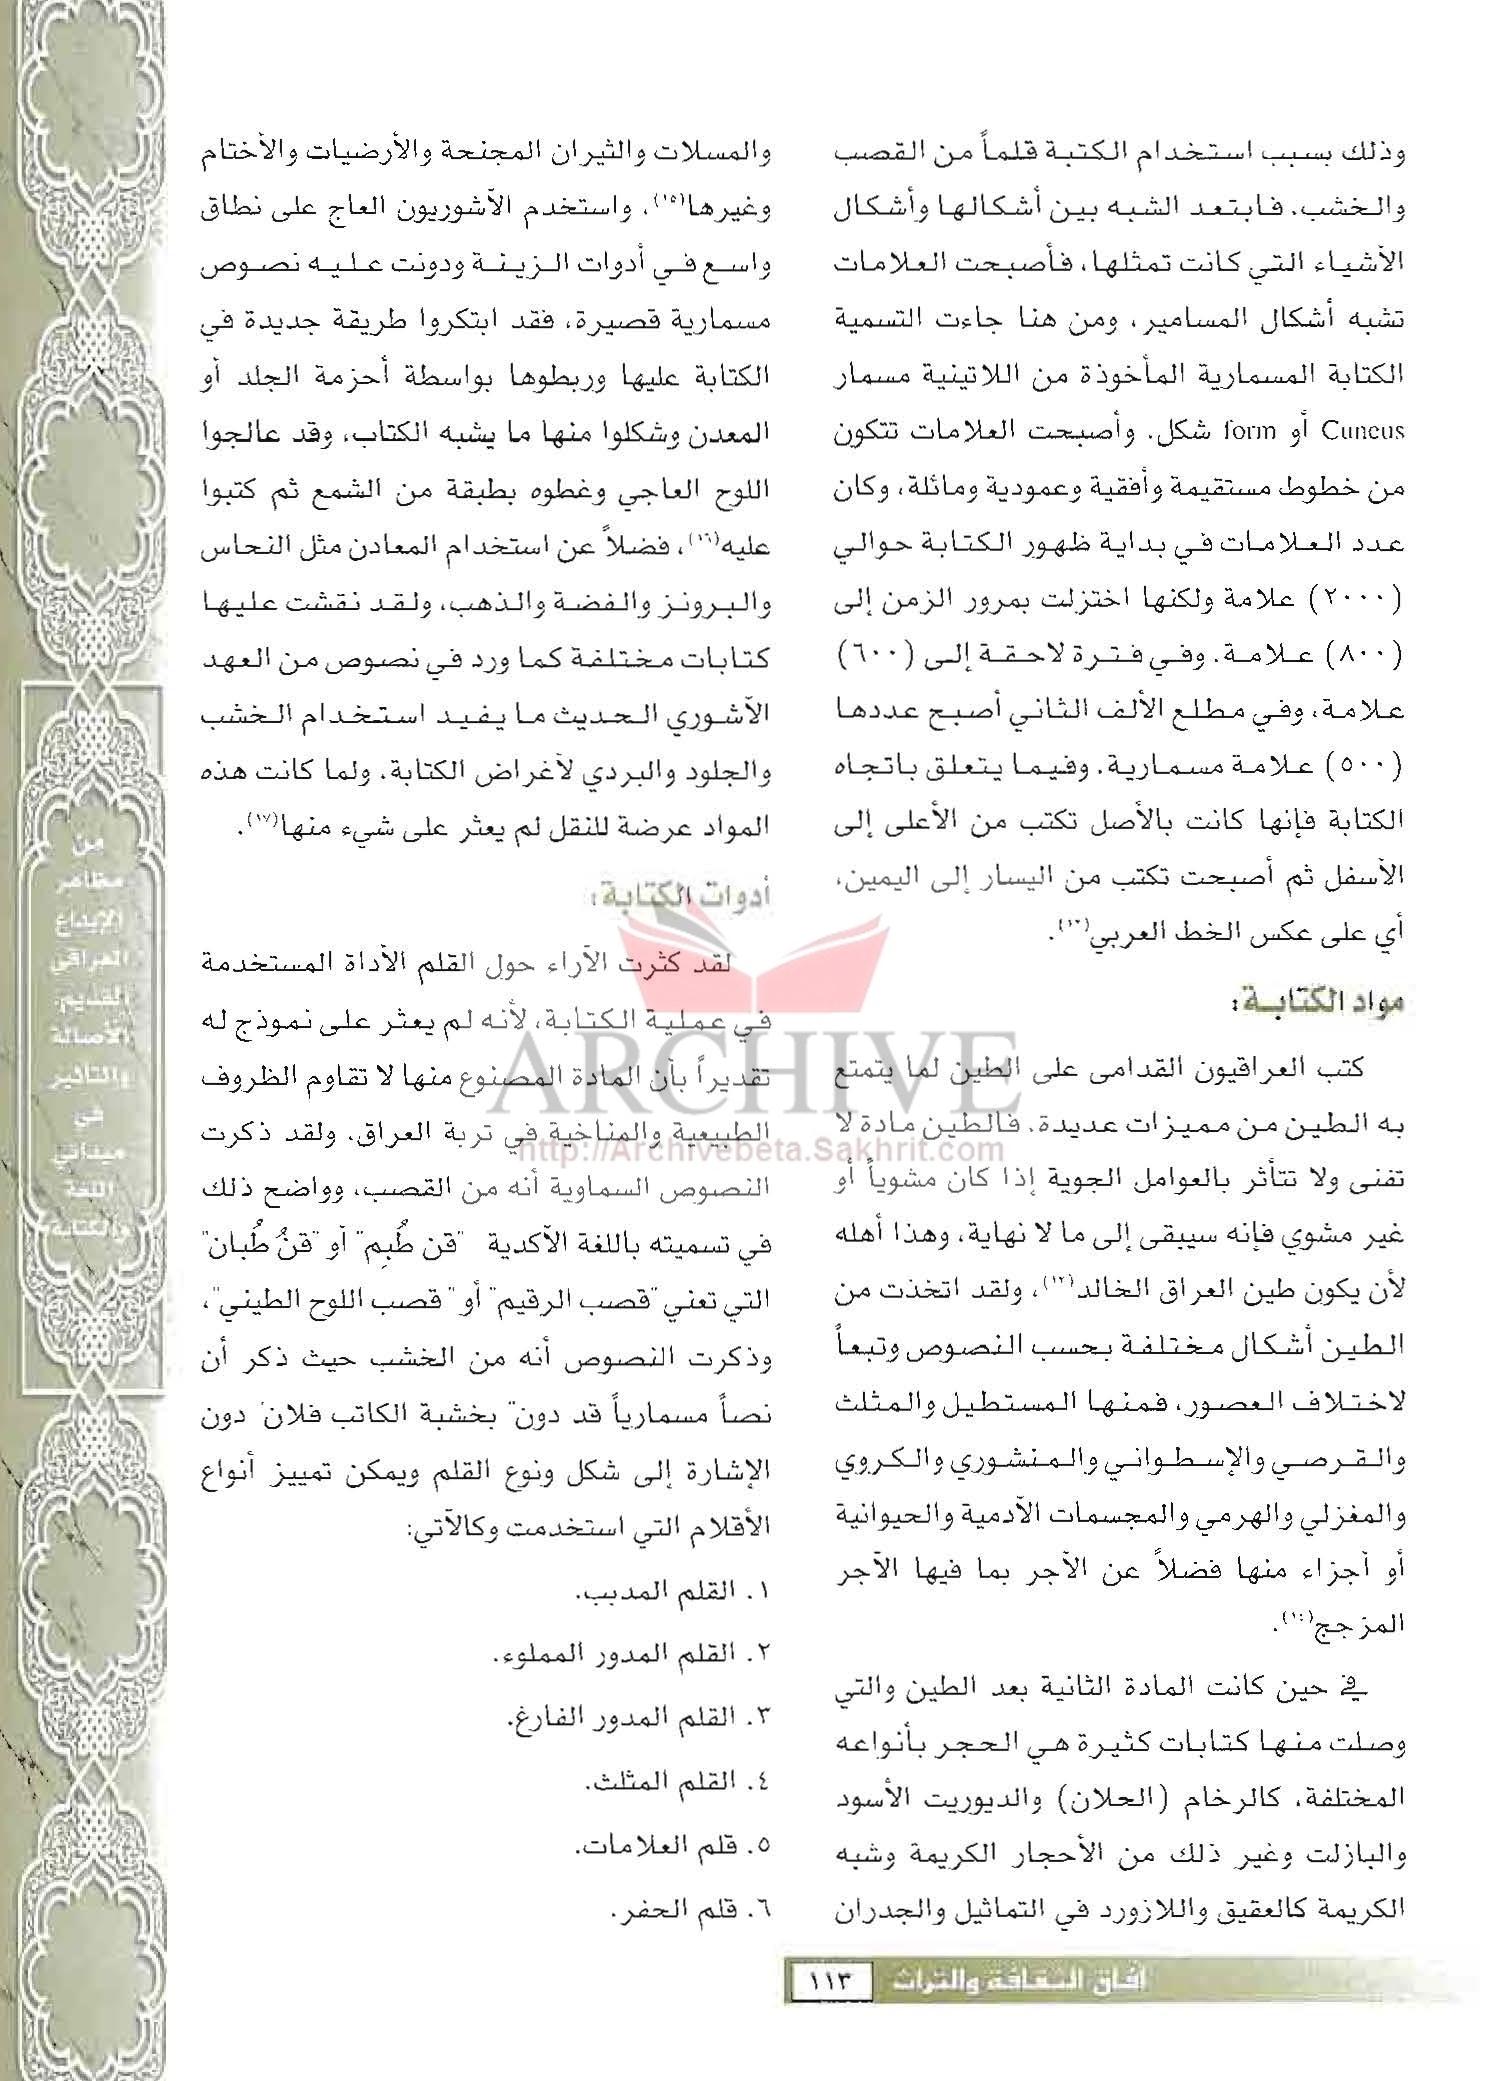 وذلك بسبب استخدام الكتبة قلماً من القصب
والخشب. فابتعد الشبه بين أشكالها وأشكال
الأشياء التي كانت تمثلها، فأصبحت العلامات
تشبه أشكال المسامير، ومن هنا جاءت التسمية
الكتابة المسمارية المأخوذة من اللاتينية مسمار
Cuneus أو form شكل. وأصبحت العلامات تتكون
من خطوط مستقيمة وأفقية وعمودية ومائلة، وكان
عدد العلامات في بداية ظهور الكتابة حوالي
(٢٠٠٠) علامة ولكنها اختزلت بمرور الزمن إلى
(٨٠٠) علامة. وفي فترة لاحقة إلى (٦٠٠)
علامة، وفي مطلع الألف الثاني أصبح عددها
(٥٠٠) علامة مسمارية. وفيما يتعلق باتجاه
الكتابة فإنها كانت بالأصل تكتب من الأعلى إلى
الأسفل ثم أصبحت تكتب من اليسار إلى اليمين،
أي على عكس الخط العربي.
مواد الكتابة:
كتب العراقيون القدامى على الطين لما يتمتع
به الطين من مميزات عديدة. فالطين مادة لا
تفنى ولا تتأثر بالعوامل الجوية إذا كان مشوياً أو
غير مشوي فإنه سيبقى إلى ما لا نهاية، وهذا أهله
لأن يكون طين العراق الخالد، ولقد اتخذت من
الطين أشكال مختلفة بحسب النصوص وتبعاً
لاختلاف العصور، فمنها المستطيل والمثلث
والقرصي والإسطواني والمنشوري والكروي
والمغزلي والهرمي والمجسمات الآدمية والحيوانية
أو أجزاء منها فضلاً عن الآجر بما فيها الآجر
المزجج(١٤).
في حين كانت المادة الثانية بعد الطين والتي
وصلت منها كتابات كثيرة هي الحجر بأنواعه
المختلفة، كالرخام (الحلان) والديوريت الأسود
والبازلت وغير ذلك من الأحجار الكريمة وشبه
الكريمة كالعقيق واللازورد في التماثيل والجدران
والمسلات والثيران المجنحة والأرضيات والأختام
وغيرها(١٥)، واستخدم الآشوريون العاج على نطاق
واسع في أدوات الزينة ودونت عليه نصوص
مسمارية قصيرة، فقد ابتكروا طريقة جديدة في
الكتابة عليها وربطوها بواسطة أحزمة الجلد أو
المعدن وشكلوا منها ما يشبه الكتاب، وقد عالجوا
اللوح العاجي وغطوه بطبقة من الشمع ثم كتبوا
عليه(١٦)، فضلاً عن استخدام المعادن مثل النحاس
والبرونز والفضة والذهب، ولقد نقشت عليها
كتابات مختلفة كما ورد في نصوص من العهد
الآشوري الحديث ما يفيد استخدام الخشب
والجلود والبردي لأغراض الكتابة، ولما كانت هذه
المواد عرضة للنقل لم يعثر على شيء منها(١٧).
أدوات الكتابة:
لقد كثرت الآراء حول القلم الأداة المستخدمة
في عملية الكتابة، لأنه لم يعثر على نموذج له
تقديراً بأن المادة المصنوع منها لا تقاوم الظروف
الطبيعية والمناخية في تربة العراق، ولقد ذكرت
النصوص السماوية أنه من القصب، وواضح ذلك
في تسميته باللغة الآكدية "قن طُبِم" أو "قنُ طُبان"
التي تعني "قصب الرقيم" أو "قصب اللوح الطيني"،
وذكرت النصوص أنه من الخشب حيث ذكر أن
نصاً مسمارياً قد دون" بخشبة الكاتب فلان" دون
الإشارة إلى شكل ونوع القلم ويمكن تمييز أنواع
الأقلام التي استخدمت وكالآتي:
١. القلم المدبب.
٢. القلم المدور المملوء.
٣. القلم المدور الفارغ.
٤. القلم المثلث.
٥. قلم العلامات.
٦. قلم الحفر.
من
مظاهر
الإبداع
العراقي
القديم:
الأصالة
والتأثير
في
ميداني
اللغة
والكتابة
ARCHIVE
http://Archivebeta.Sakhrit.com
آفاق الثقافة والتراث ١١٣